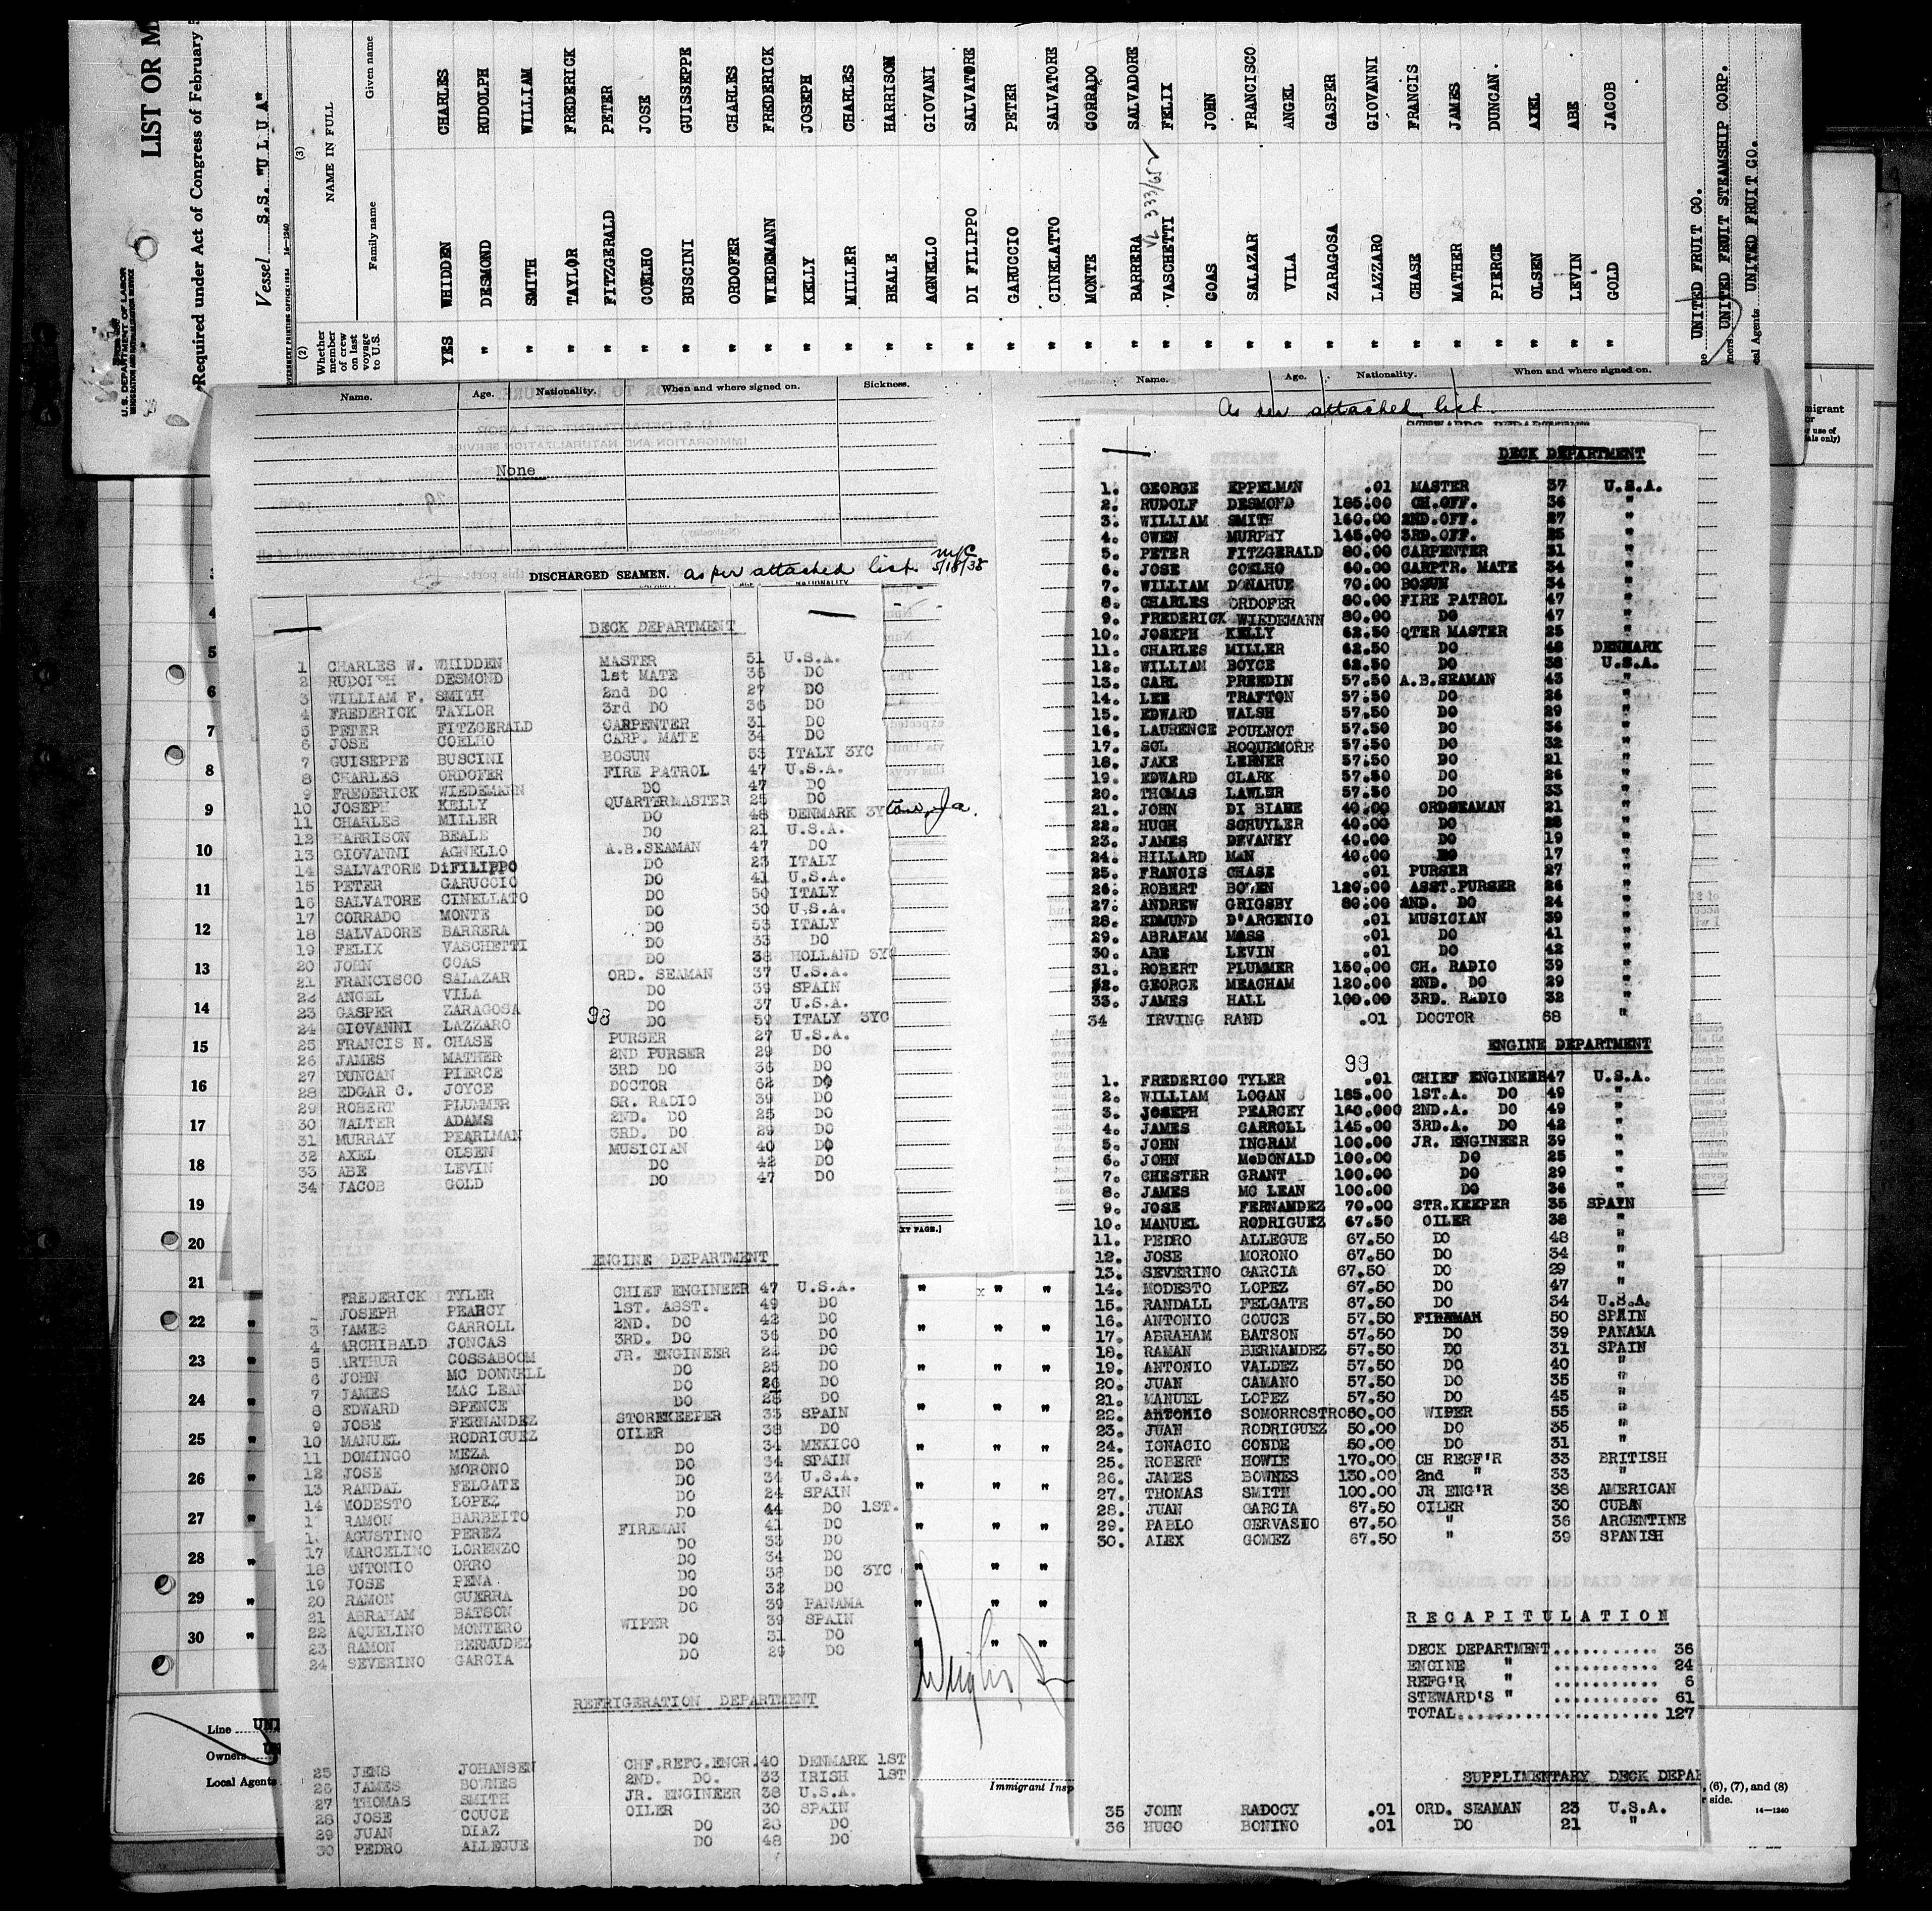 LIST OR M
Required under Act of Congress of February 5
U.S. DEPARTMENT OF LABOR
IMMIGRATION AND NATURALIZATION SERVICE
Vessel S.S. "ULUA"
14—1240
(2) (3)
Whether member of crew on last voyage to U.S.
NAME IN FULL
Family name Given name
YES WHIDDEN CHARLES
" DESMOND RUDOLPH
" SMITH WILLIAM
" TAYLOR FREDERICK
" FITZGERALD PETER
" COELHO JOSE
" BUSCINI GUISSEPPE
" ORDOFER CHARLES
" WIEDEMANN FREDERICK
" KELLY JOSEPH
" MILLER CHARLES
" BEALE HARRISON
" AGNELLO GIOVANI
" DI FILIPPO SALVATORE
" GARUCCIO PETER
" CINELATTO SALVATORE
" MONTE CORRADO
" BARRERA SALVADORE
" VASCHETTI FELIX
" COAS JOHN
" SALAZAR FRANCISCO
" VILA ANGEL
" ZARAGOSA GASPER
" LAZZARO GIOVANNI
" CHASE FRANCIS
" MATHER JAMES
" PIERCE DUNCAN.
" OLSEN AXEL
" LEVIN ABE
" GOLD JACOB
UNITED FRUIT CO.
UNITED FRUIT STEAMSHIP CORP.
Agents UNITED FRUIT CO.
Name. Age. Nationality. When and where signed on. Sickness.
None
DISCHARGED SEAMEN. as per attached list. NYC 5/18/35
NATIONALITY
DECK DEPARTMENT
1 CHARLES W. WHIDDEN MASTER 51 U.S.A.
2 RUDOLPH DESMOND 1st MATE 35 DO
3 WILLIAM F. SMITH 2nd DO 27 DO
4 FREDERICK TAYLOR 3rd DO 36 DO
5 PETER FITZGERALD CARPENTER 31 DO
6 JOSE COELHO CARP. MATE 34 DO
7 GUISEPPE BUSCINI BOSUN 53 ITALY 3YC
8 CHARLES ORDOFER FIRE PATROL 47 U.S.A.
9 FREDERICK WIEDEMANN DO 47 DO
10 JOSEPH KELLY QUARTERMASTER 25 DO
11 CHARLES MILLER DO 48 DENMARK 3YC
12 HARRISON BEALE DO 21 U.S.A.
13 GIOVANNI AGNELLO A.B.SEAMAN 47 DO
14 SALVATORE DiFILIPPO DO 23 ITALY
15 PETER GARUCCIO DO 41 U.S.A.
16 SALVATORE CINELLATO DO 50 ITALY
17 CORRADO MONTE DO 30 U.S.A.
18 SALVADORE BARRERA DO 53 ITALY
19 FELIX VASCHETTI DO 33 DO
20 JOHN COAS DO 38 HOLLAND 3YC
21 FRANCISCO SALAZAR ORD. SEAMAN 37 U.S.A.
22 ANGEL VILA DO 39 SPAIN
23 GASPER ZARAGOSA DO 37 U.S.A.
24 GIOVANNI LAZZARO DO 59 ITALY 3YC
98
25 FRANCIS N. CHASE PURSER 27 U.S.A.
26 JAMES MATHER 2ND PURSER 29 DO
27 DUNCAN PIERCE 3RD DO 36 DO
28 EDGAR C. JOYCE DOCTOR 62 DO
29 ROBERT PLUMMER SR. RADIO 39 DO
30 WALTER ADAMS 2ND. DO 25 DO
31 MURRAY PEARLMAN 3RD. DO 29 DO
32 AXEL OLSEN MUSICIAN 40 DO
33 ABE LEVIN DO 42 DO
34 JACOB GOLD DO 47 DO
ENGINE DEPARTMENT
FREDERICK TYLER CHIEF ENGINEER 47 U.S.A.
JOSEPH PEARCY 1ST. ASST. 49 DO
3 JAMES CARROLL 2ND. DO 42 DO
4 ARCHIBALD JONCAS 3RD. DO 36 DO
5 ARTHUR COSSABOOM JR. ENGINEER 22 DO
6 JOHN MC DONNELL DO 25 DO
7 JAMES MAC LEAN DO 26 DO
8 EDWARD SPENCE DO 28 DO
9 JOSE FERNANDEZ STOREKEEPER 35 SPAIN
10 MANUEL RODRIGUEZ OILER 38 DO
11 DOMINGO MEZA DO 34 MEXICO
12 JOSE MORONO DO 34 SPAIN
13 RANDAL FELGATE DO 34 U.S.A.
14 MODESTO LOPEZ DO 24 SPAIN
1 RAMON BARBEITO DO 44 DO 1ST.
1 AGUSTINO PEREZ FIREMAN 41 DO
17 MARCELINO LORENZO DO 33 DO
18 ANTONIO ORRO DO 34 DO
19 JOSE PENA DO 38 DO 3YC
20 RAMON GUERRA DO 32 DO
21 ABRAHAM BATSON DO 39 PANAMA
22 AQUELINO MONTERO WIPER 39 SPAIN
23 RAMON BERMUDEZ DO 31 DO
24 SEVERINO GARCIA DO 29 DO
REFRIGERATION DEPARTMENT
25 JENS JOHANSEN CHF.REFG.ENGR. 40 DENMARK 1ST
26 JAMES BOWNES 2ND. DO. 33 IRISH 1ST
27 THOMAS SMITH JR. ENGINEER 38 U.S.A.
28 JOSE COUCE OILER 30 SPAIN
29 JUAN DIAZ DO 28 DO
30 PEDRO ALLEGUE DO 48 DO
Name. Age. Nationality. When and where signed on.
As per attached list.
DECK DEPARTMENT
1. GEORGE EPPELMAN .01 MASTER 37 U.S.A.
2. RUDOLF DESMOND 185.00 CH.OFF. 36 "
3. WILLIAM SMITH 160.00 2ND.OFF. 27 "
4. OWEN MURPHY 145.00 3RD.OFF. 25 "
5. PETER FITZGERALD 80.00 CARPENTER 31 "
6. JOSE COELHO 60.00 CARPTR. MATE 34 "
7. WILLIAM DONAHUE 70.00 BOSUN 34 "
8. CHARLES ORDOFER 80.00 FIRE PATROL 47 "
9. FREDERICK WIEDEMANN 80.00 DO 47 "
10. JOSEPH KELLY 62.50 QTER MASTER 25 "
11. CHARLES MILLER 62.50 DO 48 DENMARK
12. WILLIAM BOYCE 62.50 DO 38 U.S.A.
13. CARL PREEDIN 57.50 A.B.SEAMAN 43 "
14. LEE TRAFTON 57.50 DO 26 "
15. EDWARD WALSH 57.50 DO 29 "
16. LAURENCE POULNOT 57.50 DO 36 "
17. SOL ROQUEMORE 57.50 DO 32 "
18. JAKE LERNER 57.50 DO 21 "
19. EDWARD CLARK 57.50 DO 26 "
20. THOMAS LAWLER 57.50 DO 33 "
21. JOHN DI BIASE 40.00 ORDSEAMAN 21 "
22. HUGH SCHUYLER 40.00 DO 28 "
23. JAMES DEVANEY 40.00 DO 19 "
24. HILLARD MAN 40.00 DO 17 "
25. FRANCIS CHASE .01 PURSER 27 "
26. ROBERT BOWEN 120.00 ASST.PURSER 26 "
27. ANDREW GRIGSBY 80.00 2ND. DO 24 "
28. EDMUND D'ARGENIO .01 MUSICIAN 39 "
29. ABRAHAM MOSS .01 DO 41 "
30. ABE LEVIN .01 DO 42 "
31. ROBERT PLUMMER 150.00 CH. RADIO 39 "
32. GEORGE MEACHAM 120.00 2ND. DO 29 "
33. JAMES HALL 100.00 3RD. RADIO 32 "
34 IRVING RAND .01 DOCTOR 68 "
ENGINE DEPARTMENT
99
1. FREDERICO TYLER .01 CHIEF ENGINEER 47 U.S.A.
2. WILLIAM LOGAN 185.00 1ST.A. DO 49 "
3. JOSEPH PEARCEY 160.000 2ND.A. DO 49 "
4. JAMES CARROLL 145.00 3RD.A. DO 42 "
5. JOHN INGRAM 100.00 JR. ENGINEER 39 "
6. JOHN McDONALD 100.00 DO 25 "
7. CHESTER GRANT 100.00 DO 29 "
8. JAMES MC LEAN 100.00 DO 36 "
9. JOSE FERNANDEZ 70.00 STR.KEEPER 35 SPAIN
10. MANUEL RODRIGUEZ 67.50 OILER 38 "
11. PEDRO ALLEGUE 67.50 DO 48 "
12. JOSE MORONO 67.50 DO 34 "
13. SEVERINO GARCIA 67.50 DO 29 "
14. MODESTO LOPEZ 67.50 DO 47 "
15. RANDALL FELGATE 67.50 DO 34 U.S.A.
16. ANTONIO COUCE 57.50 FIREMAN 50 SPAIN
17. ABRAHAM BATSON 57.50 DO 39 PANAMA
18. RAMAN BERNANDEZ 57.50 DO 31 SPAIN
19. ANTONIO VALDEZ 57.50 DO 40 "
20. JUAN CAMANO 57.50 DO 35 "
21. MANUEL LOPEZ 57.50 DO 45 "
22. ANTONIO SOMORROSTRO 50.00 WIPER 55 "
23. JUAN RODRIGUEZ 50.00 DO 35 "
24. IGNACIO CONDE 50.00 DO 31 "
25. ROBERT HOWIE 170.00 CH REGF'R 33 BRITISH
26. JAMES BOWNES 130.00 2nd " 33 "
27. THOMAS SMITH 100.00 JR ENG'R 38 AMERICAN
28. JUAN GARCIA 67.50 OILER 30 CUBAN
29. PABLO GERVASNO 67.50 " 36 ARGENTINE
30. ALEX GOMEZ 67.50 " 39 SPANISH
RECAPITULATION
DECK DEPARTMENT........... 36
ENGINE " ........... 24
REFG'R " ........... 6
STEWARD'S " ........... 61
TOTAL..................... 127
SUPPLIMENTARY DECK DEPAR
35 JOHN RADOCY .01 ORD. SEAMAN 23 U.S.A.
36 HUGO BONINO .01 DO 21 "
4
5
6
7
8
9
10
11
12
13
14
15
16
17
18
19
20
21
22
23
24
25
26
27
28
29
30
Line
Owners
Local Agents
Immigrant Insp
, (6), (7), and (8)
side.
14—1240